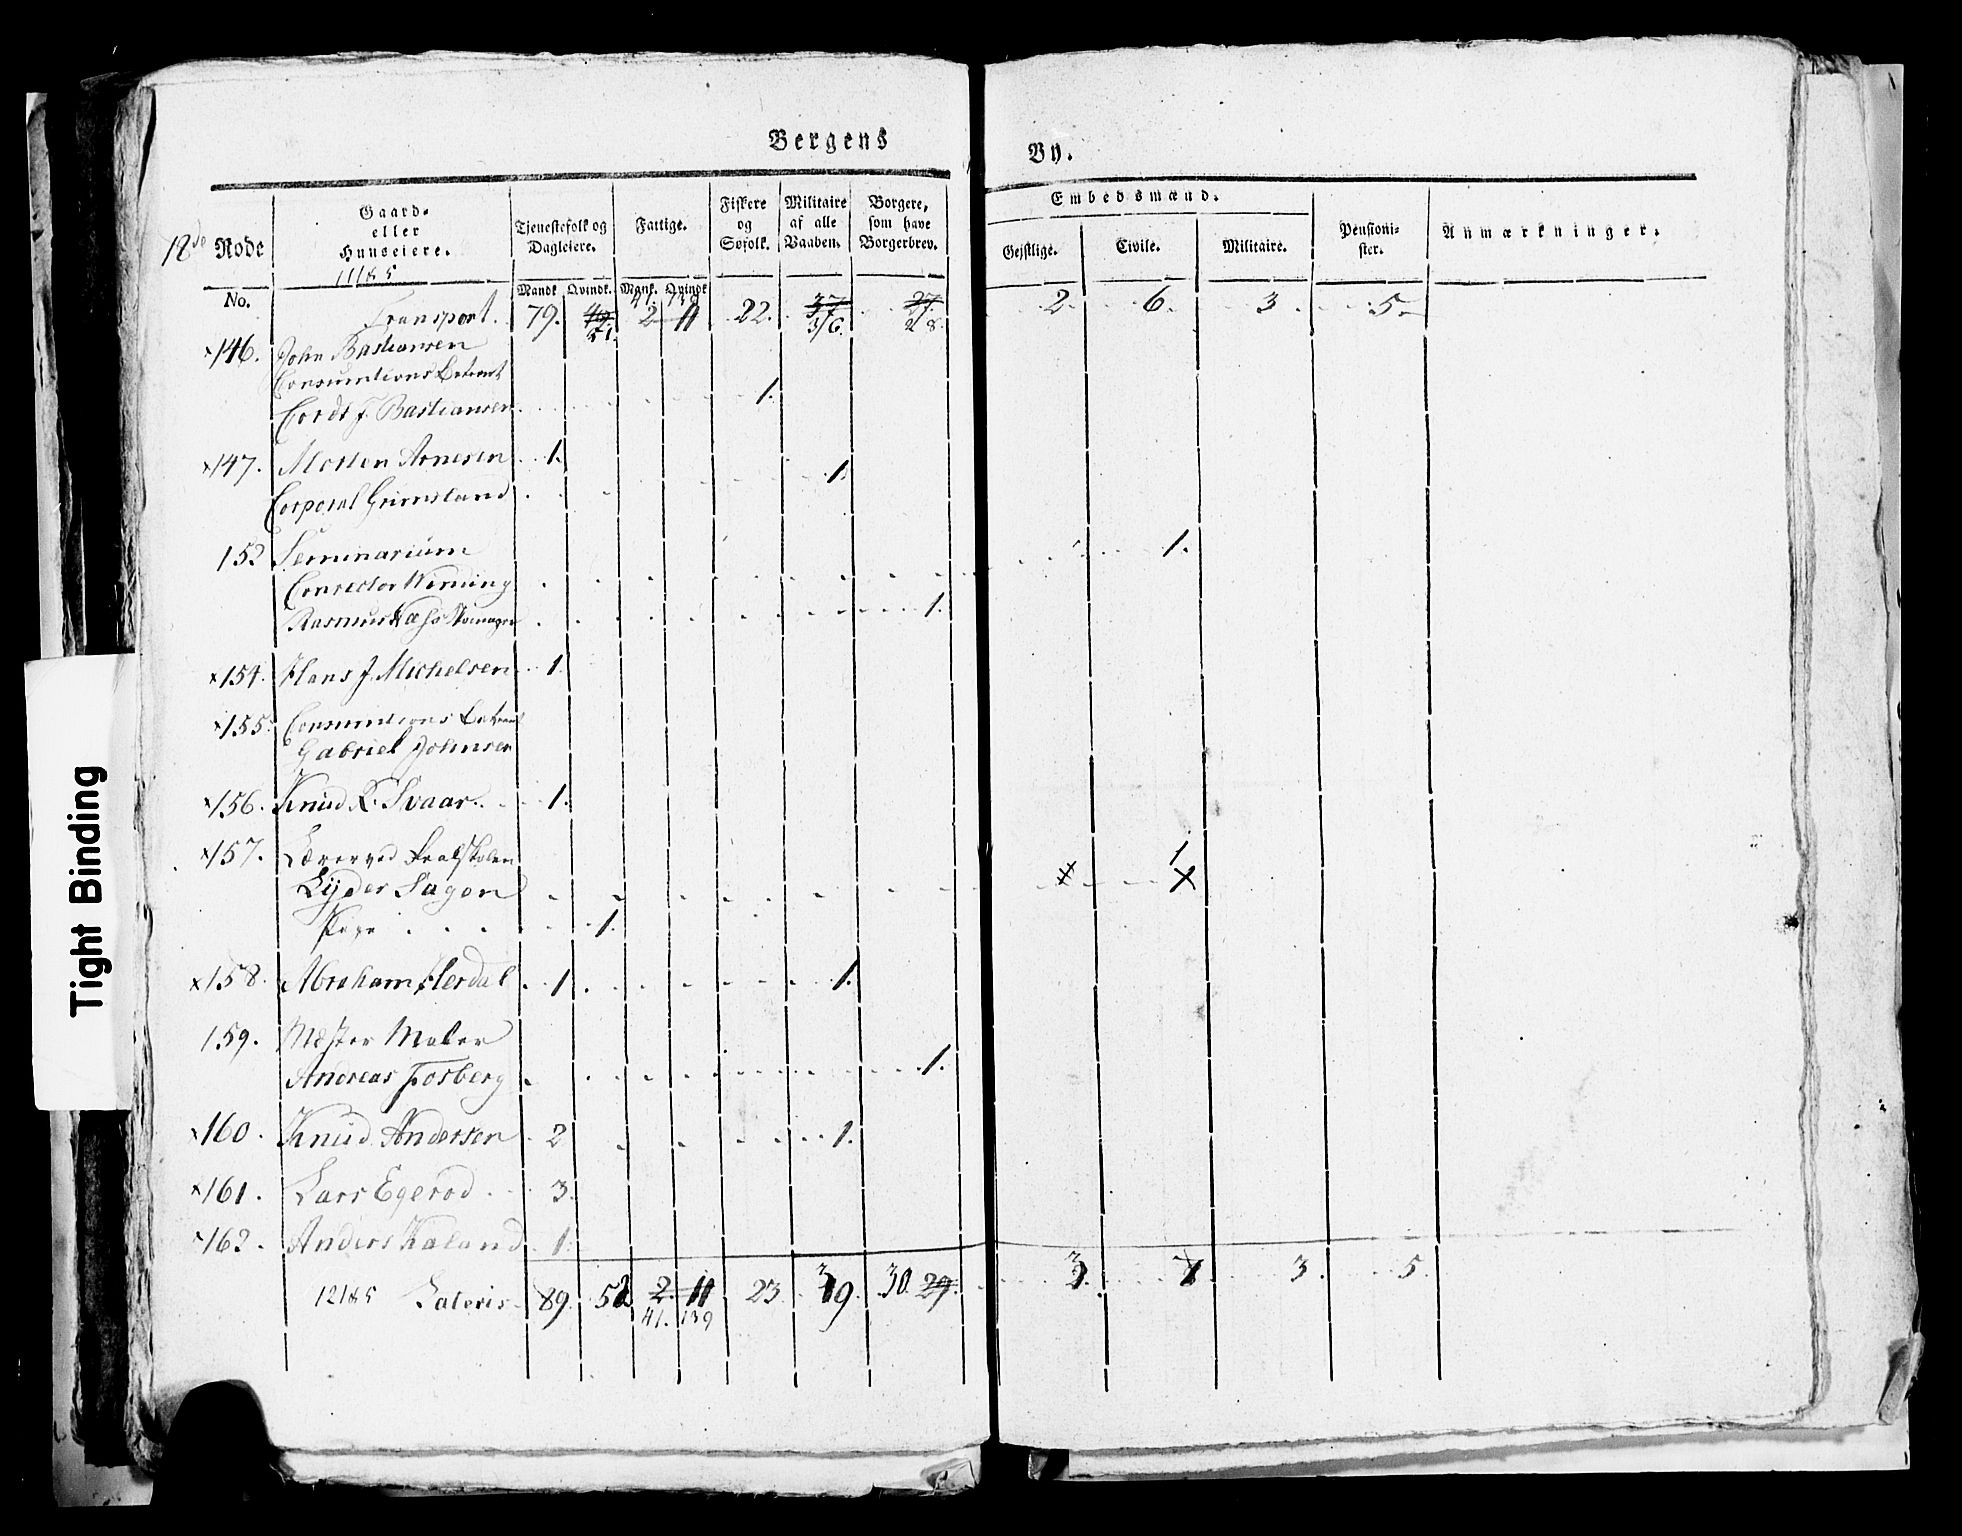 Bergens By.
18de Rode
Gaard- eller Huuseiere.
Tjenestefolk og Dagleiere.
Fattige.
Fiskere og Søfolk.
Militaire af alle Vaaben.
Borgere, som have Borgerbrev.
Embedsmænd.
Geistlige.
Civile.
Militaire.
Pensionister.
Anmærkninger.
No.
Mandk Qvindk. Mank. Qvindk
Transport. 79. 51. 41. 139 2 11 22. 37 36. 27. 28. 2. 6. 3. 5.
×146. John Bastiansen
Consumtions Betient
Cordt J. Bastiansen 1.
×147. Morten Arnesen 1.
Corporal Grimsland 1.
152 Seminarium
Conrector Werning 1.
Rasmus Skomager 1.
×154. Hans J. Michelsen 1.
×155. Consumtions Betient
Gabriel Johnsen
×156. Knud R. Svaar. 1.
×157. Lærer ved Realskolen 1
Lyder Sagen
Pige 1.
×158. Abraham Herdal 1 1.
159. Mester Maler
Andreas Forberg 1.
×160. Knud Andersen 2 1.
×161. Lars Egerod 3.
×162. Anders Kaland 1.
Lateris 89. 52 2 11 23. 39. 30. 29. 3. 7. 3. 5.
41. 139
Tight Binding